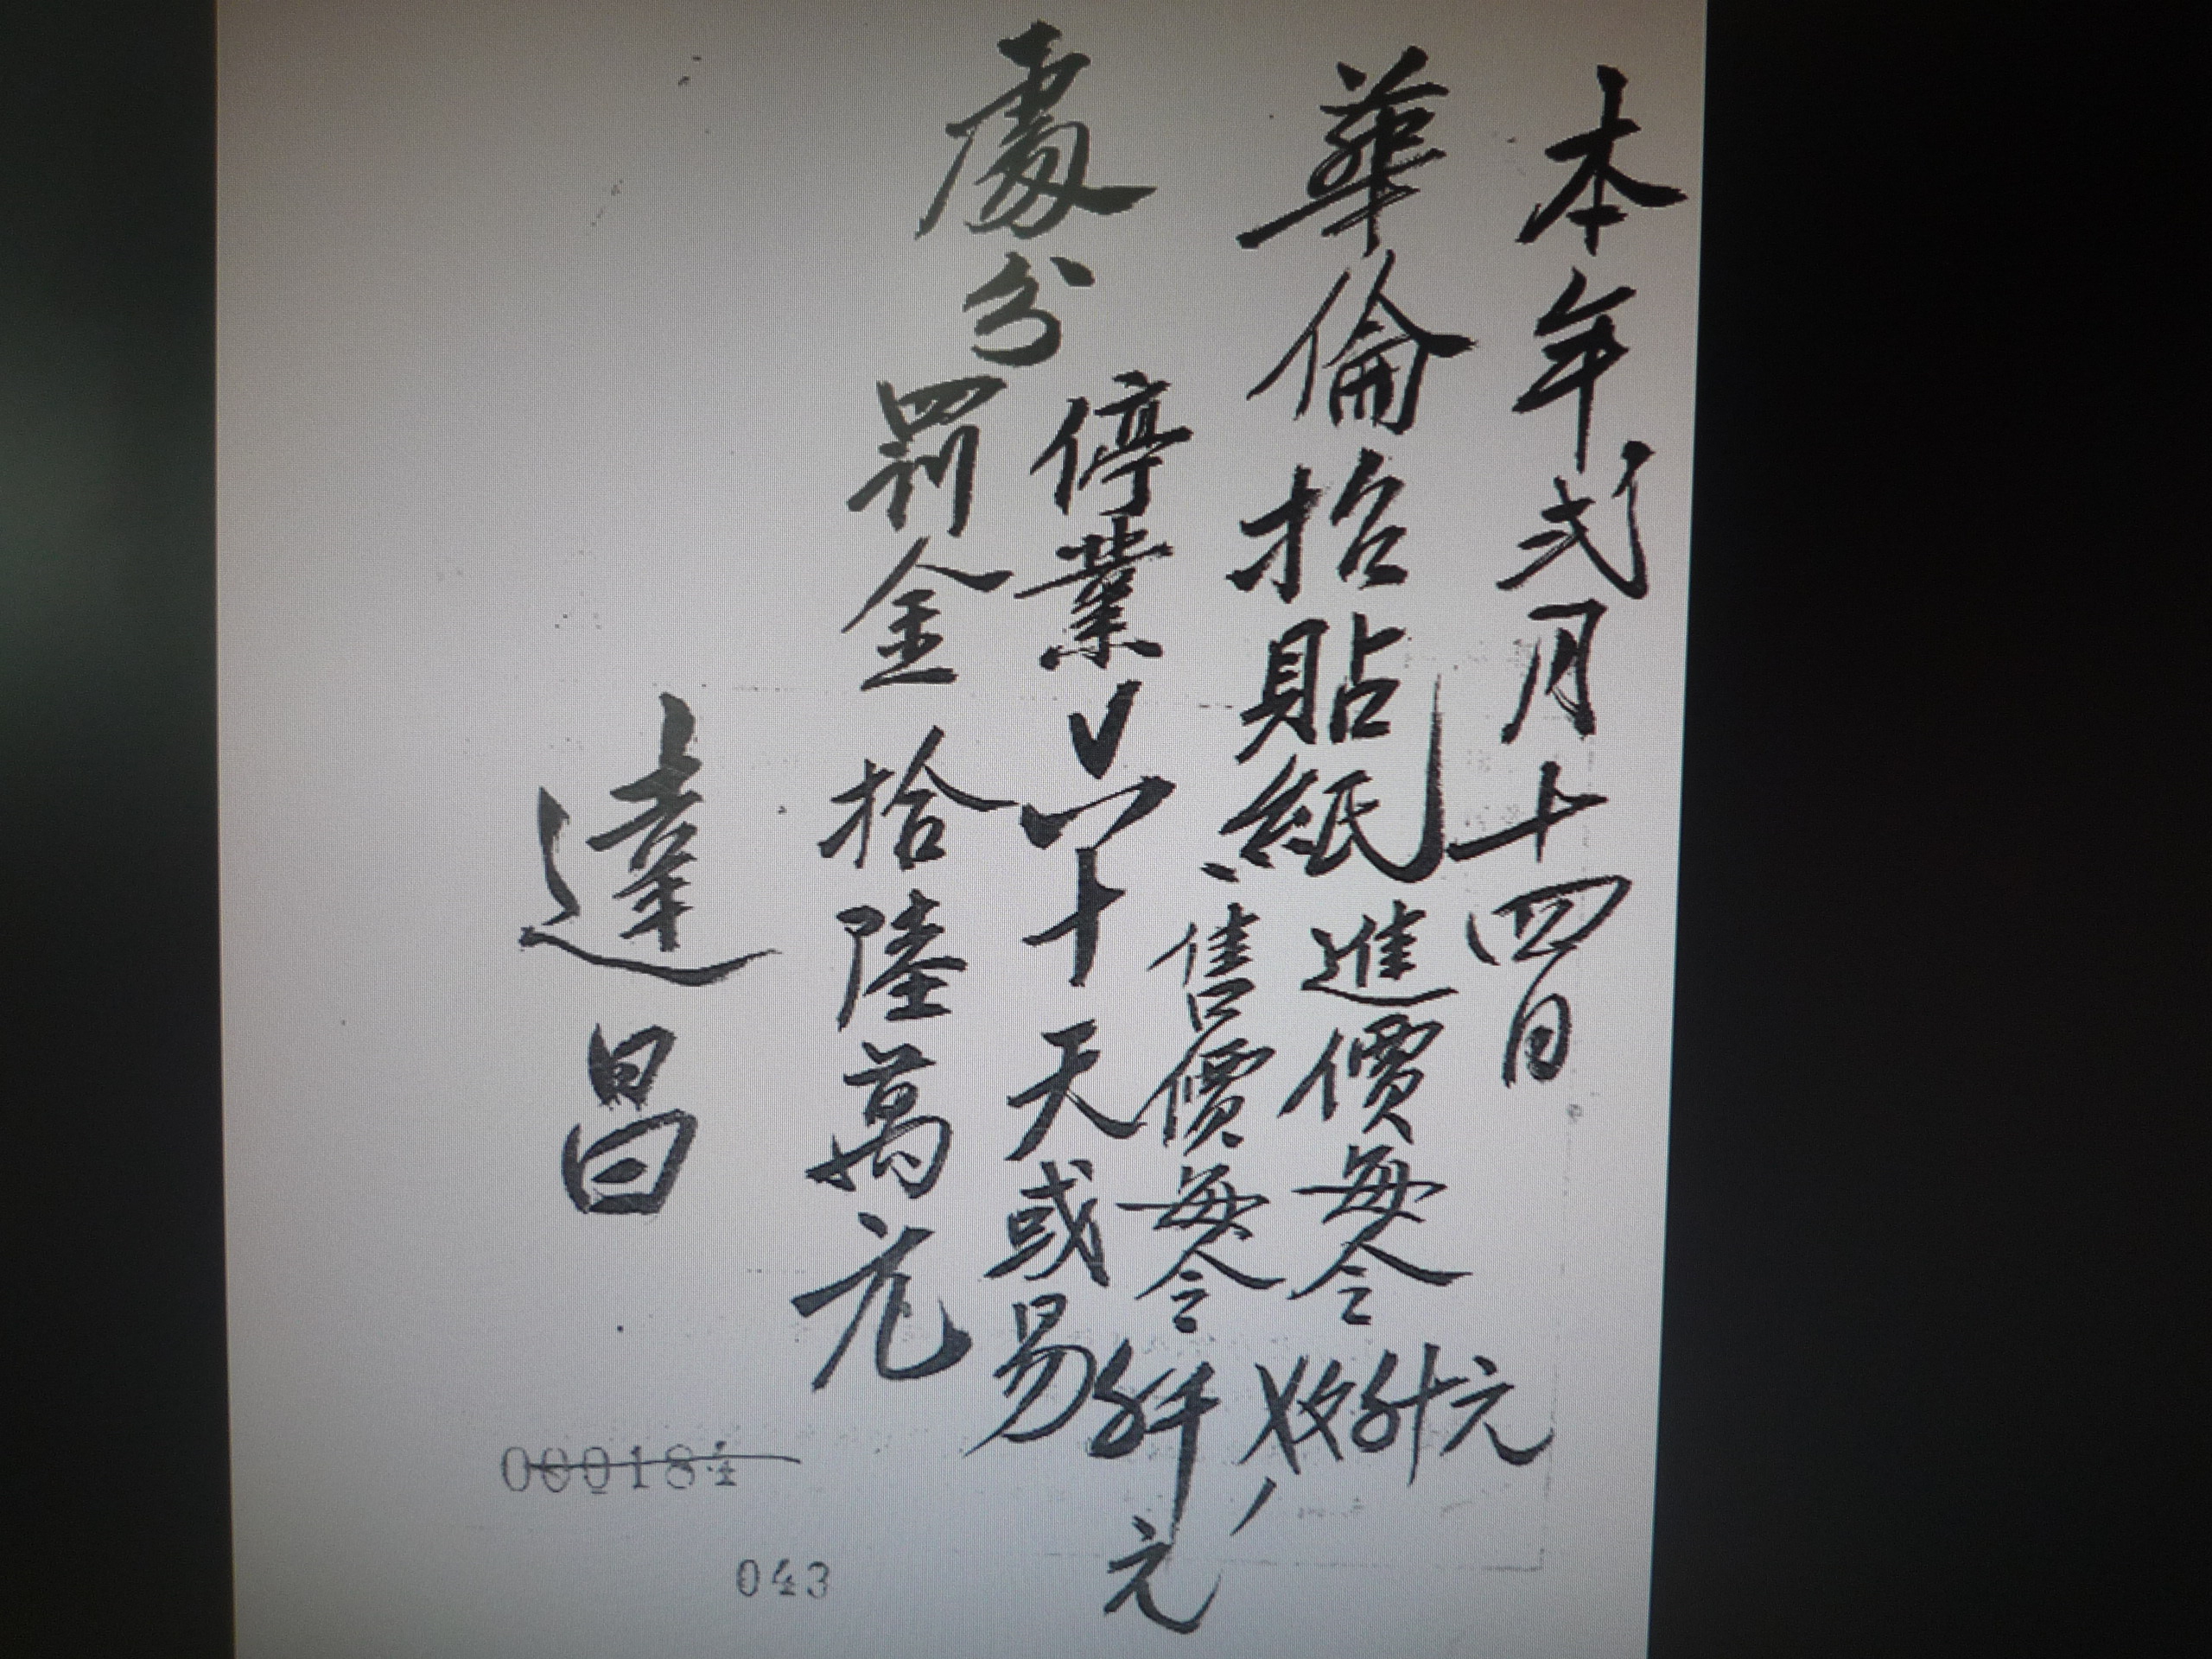 本年弍月十四日
華倫招貼紙
進價每令 元
售價每令 元
處分
停業六十天或易
罰金拾陸萬元
達昌
000184
043